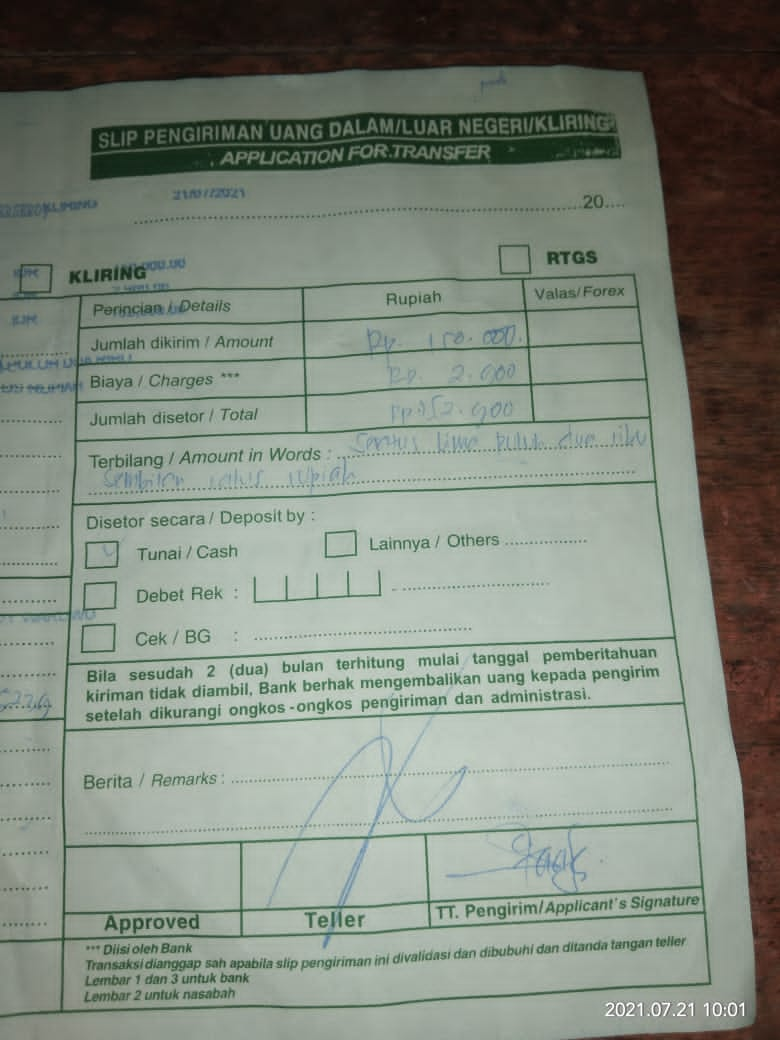 SLIP PENGIRIMAN UANG DALAM/LUAR NEGERI/KLIRING
APPLICATION FOR TRANSFER
KLIRING
21/07/2021
20....
KLIRING
RTGS
Perincian / Details
Rupiah
Valas/Forex
Jumlah dikirim / Amount
Rp. 150.000.
Biaya / Charges ***
Rp. 2.900
Jumlah disetor / Total
Rp 152.900
Terbilang / Amount in Words : Seratus lima puluh dua ribu
Sembilan ratus rupiah
Disetor secara / Deposit by :
Tunai / Cash
Lainnya / Others
Debet Rek :
Cek / BG :
Bila sesudah 2 (dua) bulan terhitung mulai tanggal pemberitahuan
kiriman tidak diambil, Bank berhak mengembalikan uang kepada pengirim
setelah dikurangi ongkos-ongkos pengiriman dan administrasi.
Berita / Remarks :
Approved
Teller
TT. Pengirim/Applicant's Signature
*** Diisi oleh Bank
Transaksi dianggap sah apabila slip pengiriman ini divalidasi dan dibubuhi dan ditanda tangan teller
Lembar 1 dan 3 untuk bank
Lembar 2 untuk nasabah
2021.07.21 10:01